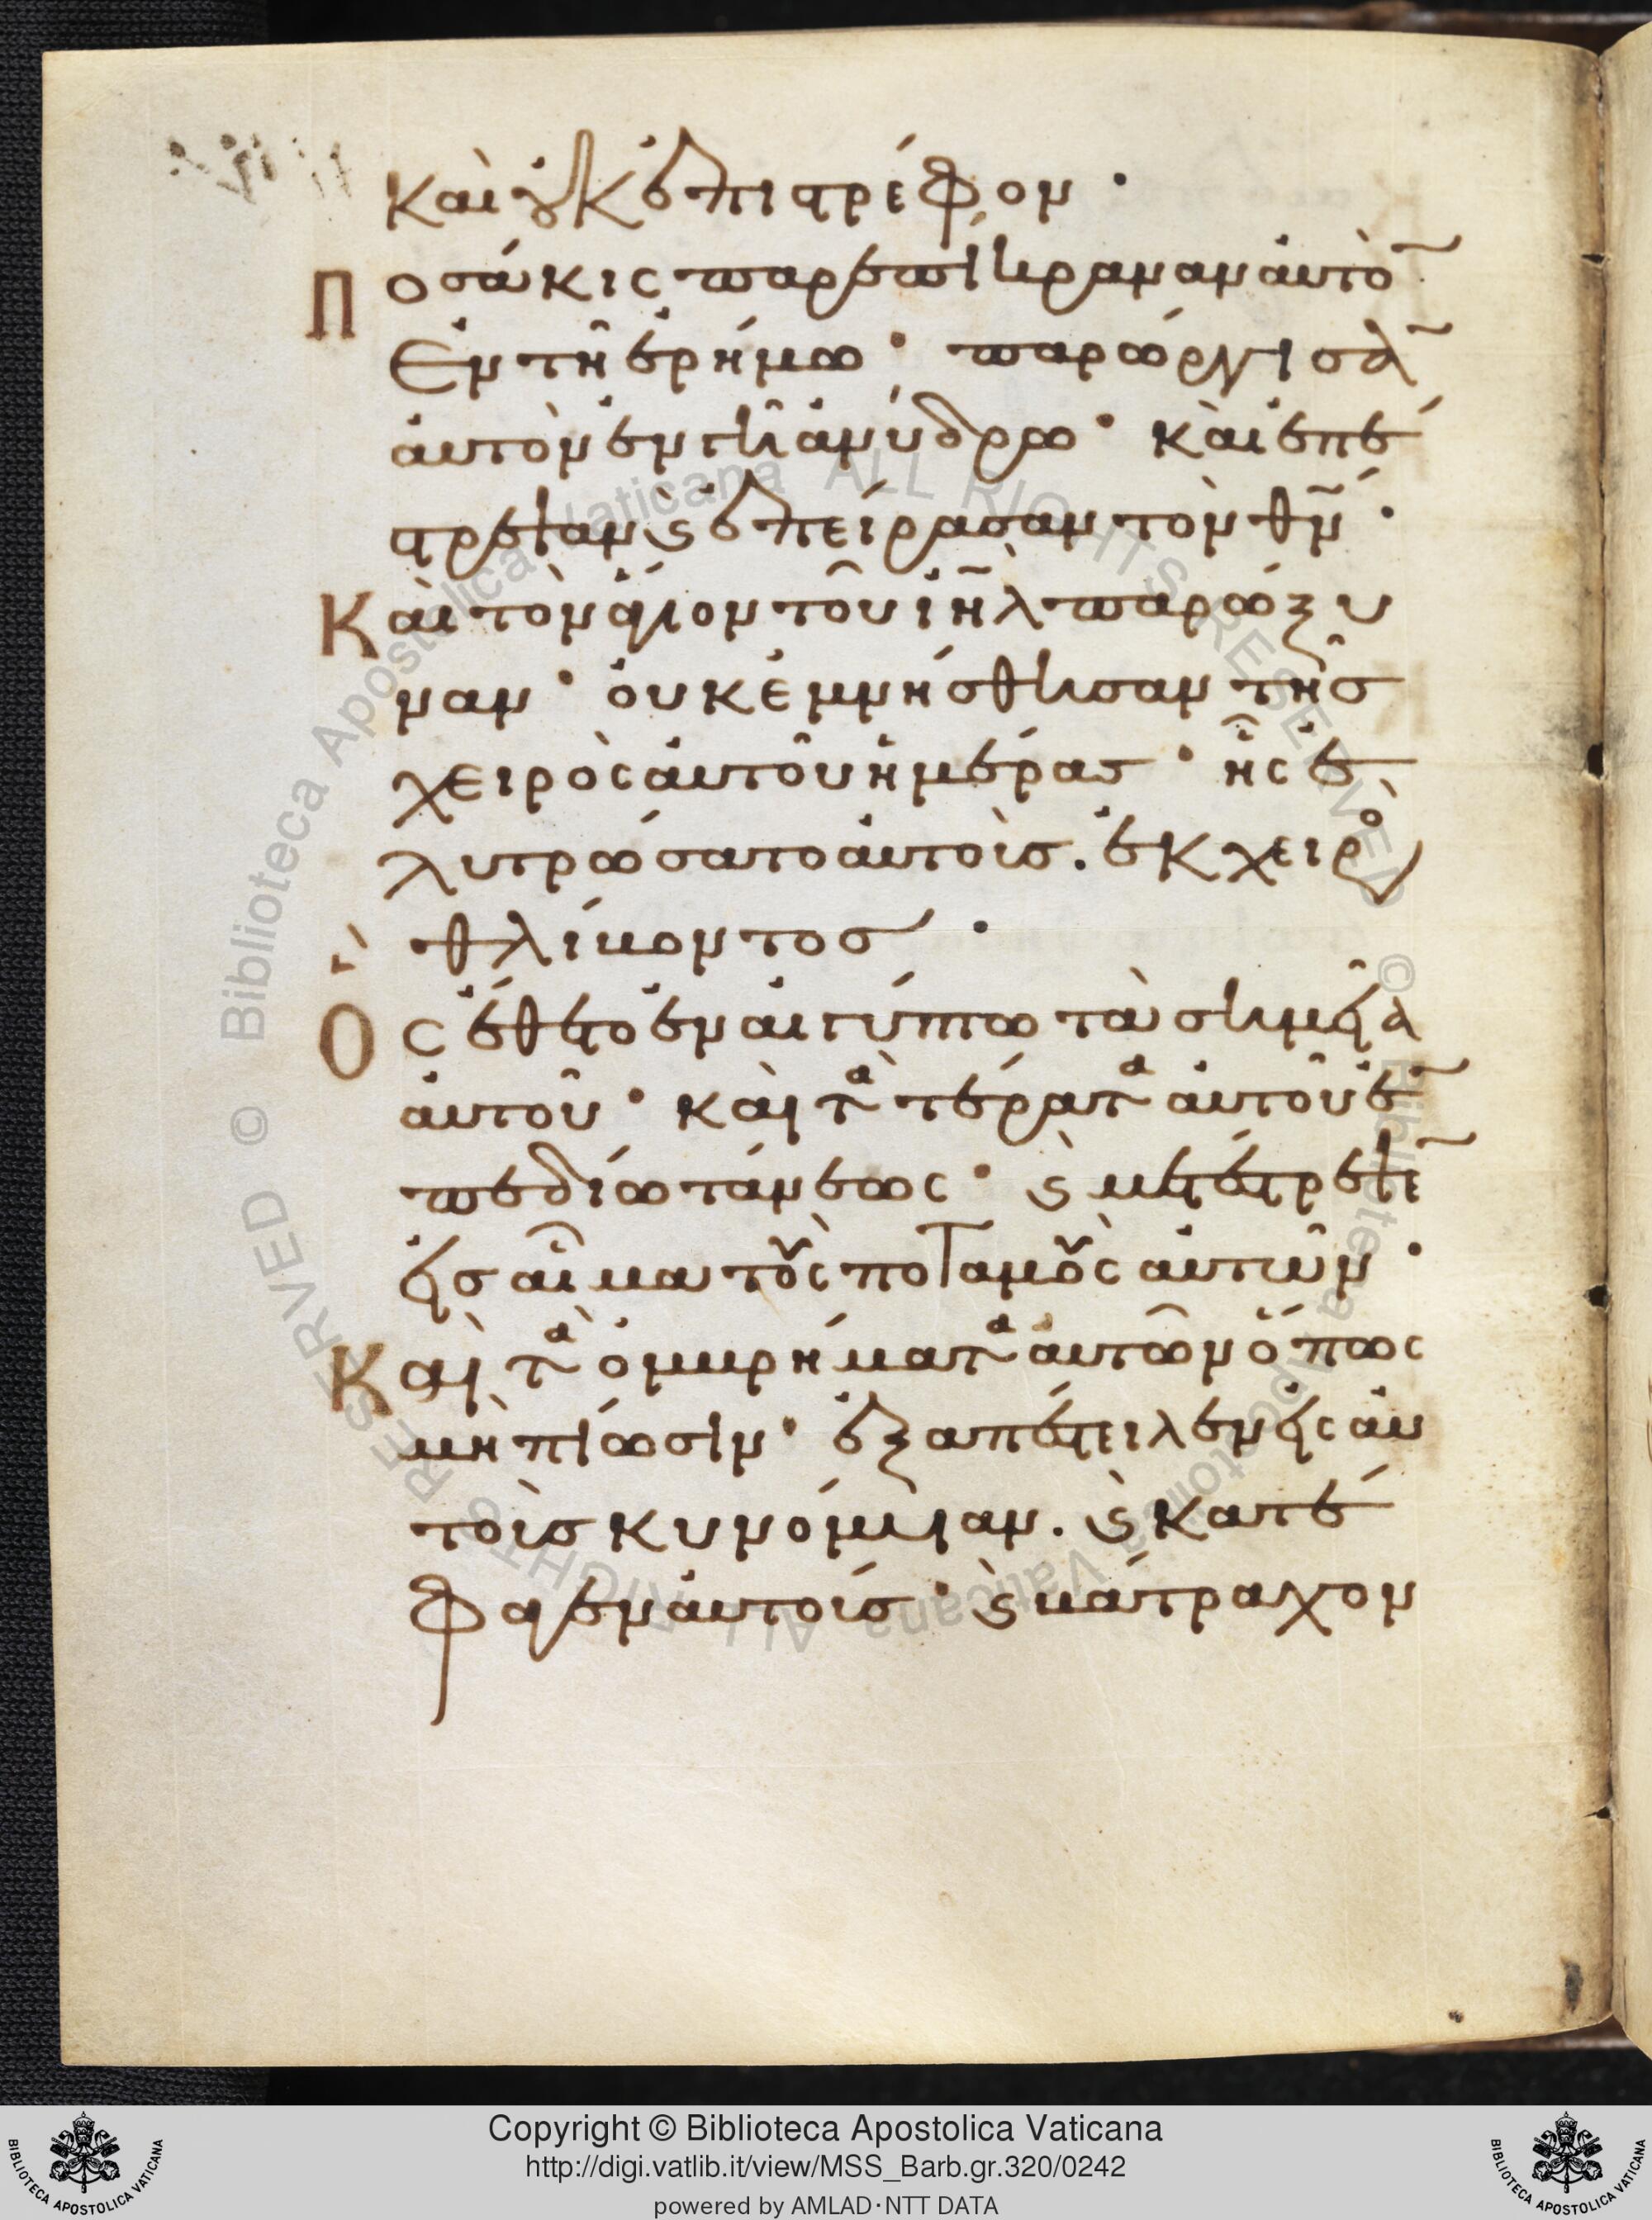 καὶ οὐκ ἐπιστρέφον·
Ποσάκις παρεπίκραναν αὐτὸ̅
ἐν τῆ ἐρήμω· παρώργισα̅
αὐτὸν ἐν γῆ ἀνύδρω· καὶ ἐπέ
στρεψαν ϗ ἐπείρασαν τὸν θν̅·
Καὶ τὸν ἅγιον τοῦ ιηλ̅ παρώξυ
ναν· οὐκ ἐμνήσθησαν τῆς
χειρὸς αὐτοῦ ἡμέρας· ἧς ἐ
λυτρώσατο αὐτοὺς. ἐκ χειρὸς
θλίβοντος·
Ὃς ἔθετο ἐν αἰγύπτω τὰ σημεῖα
αὐτοῦ· καὶ τὰ τέρατα αὐτοῦ ἐ̅
πεδίω τάνεως· ϗ μετέστρεψε̅
εἰς αἷμα τοὺς ποταμοὺς αὐτῶν·
Καὶ τὰ ὀμβρήματα αὐτῶν ὅπως
μὴ πίωσιν· ἐξαπέστειλεν εἰς αὐ
τοὺς κυνόμυιαν. ϗ κατέ
φαγεν αὐτούς· ϗ βάτραχον
© Biblioteca Apostolica Vaticana ALL RIGHTS RESERVED © Biblioteca Apostolica Vaticana ALL RIGHTS RESERVED
Copyright © Biblioteca Apostolica Vaticana
http://digi.vatlib.it/view/MSS_Barb.gr.320/0242
powered by AMLAD·NTT DATA
BIBLIOTECA APOSTOLICA VATICANA
BIBLIOTECA APOSTOLICA VATICANA